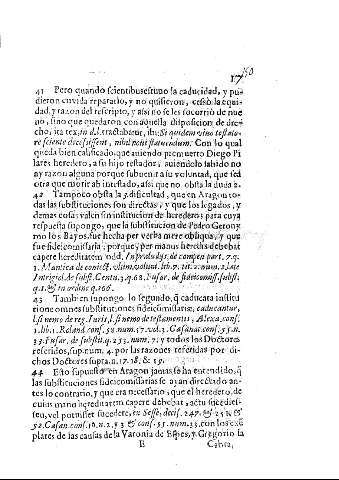 17
41 Pero quando scientibus estuuo la caducidad, y pu-
dieron en vida repararlo, y no quisieron, cessò la equi-
dad, y razon del rescripto, y assi no se les socorriò de nue
uo, sino que quedaron con aquella disposicion de dre-
cho, ita tex. in d. l. tractabatur, ibi: Si quidem viuo testato
re sciente decessissent, nihil noui statuendum: Con lo qual
queda bien calificado, que auiendo premuerto Diego Pi
lares heredero, a su hijo testador; auiendolo sabido no
ay razon alguna porque subuenir a su voluntad, que sea
otra que morir ab intestado, assi que no obsta la duda 2.
42 Tampoco obsta la 3. dificultad, que en Aragon to-
das las substituciones son directas, y que los legados, y
demas cosas valen sin institucion de heredero; para cuya
respuesta supongo, que la substitucion de Pedro Gerony
mo los Bayos fue hecha per verba mere obliqua, y que
fue fideicomissaria, porque, per manus heredis debebat
capere hereditatem
1. Mantica de coniect.
43 Tambien supongo lo segundo, que caducata institu
tione omnes substitutiones fideicomissariæ, caducantur,
l. si nemo de reg. Iuris, l. si nemo de testamentus, Alexa. cons.
1. lib. 1. Roland. cons. 58. num. 17. vol. 3. Casanat. cons. 55. n.
35. Fusar. de substit. q. 253. num. 7. y todos los Doctores
referidos, sup. num. 4. por las razones referidas por di-
chos Doctores supra. n. 17. 18. & 19.
44 Esto supuesto en Aragon jamas se ha entendido, que
las substituciones fideicomissarias se ayan directado an-
tes lo contrario, y que era necessario, que el heredero, de
cuius manu hereditatem capere debebat, actu sucedies-
se, vel potuisset succedere, ex Sesse, decis. 247. & 25.
52. Casan. cons. 16. n. 2. 53 & cons. 55. num. 35. con los exe
plares de las causas de la Varonia de Espes, y Gregorio la
B Cabra,